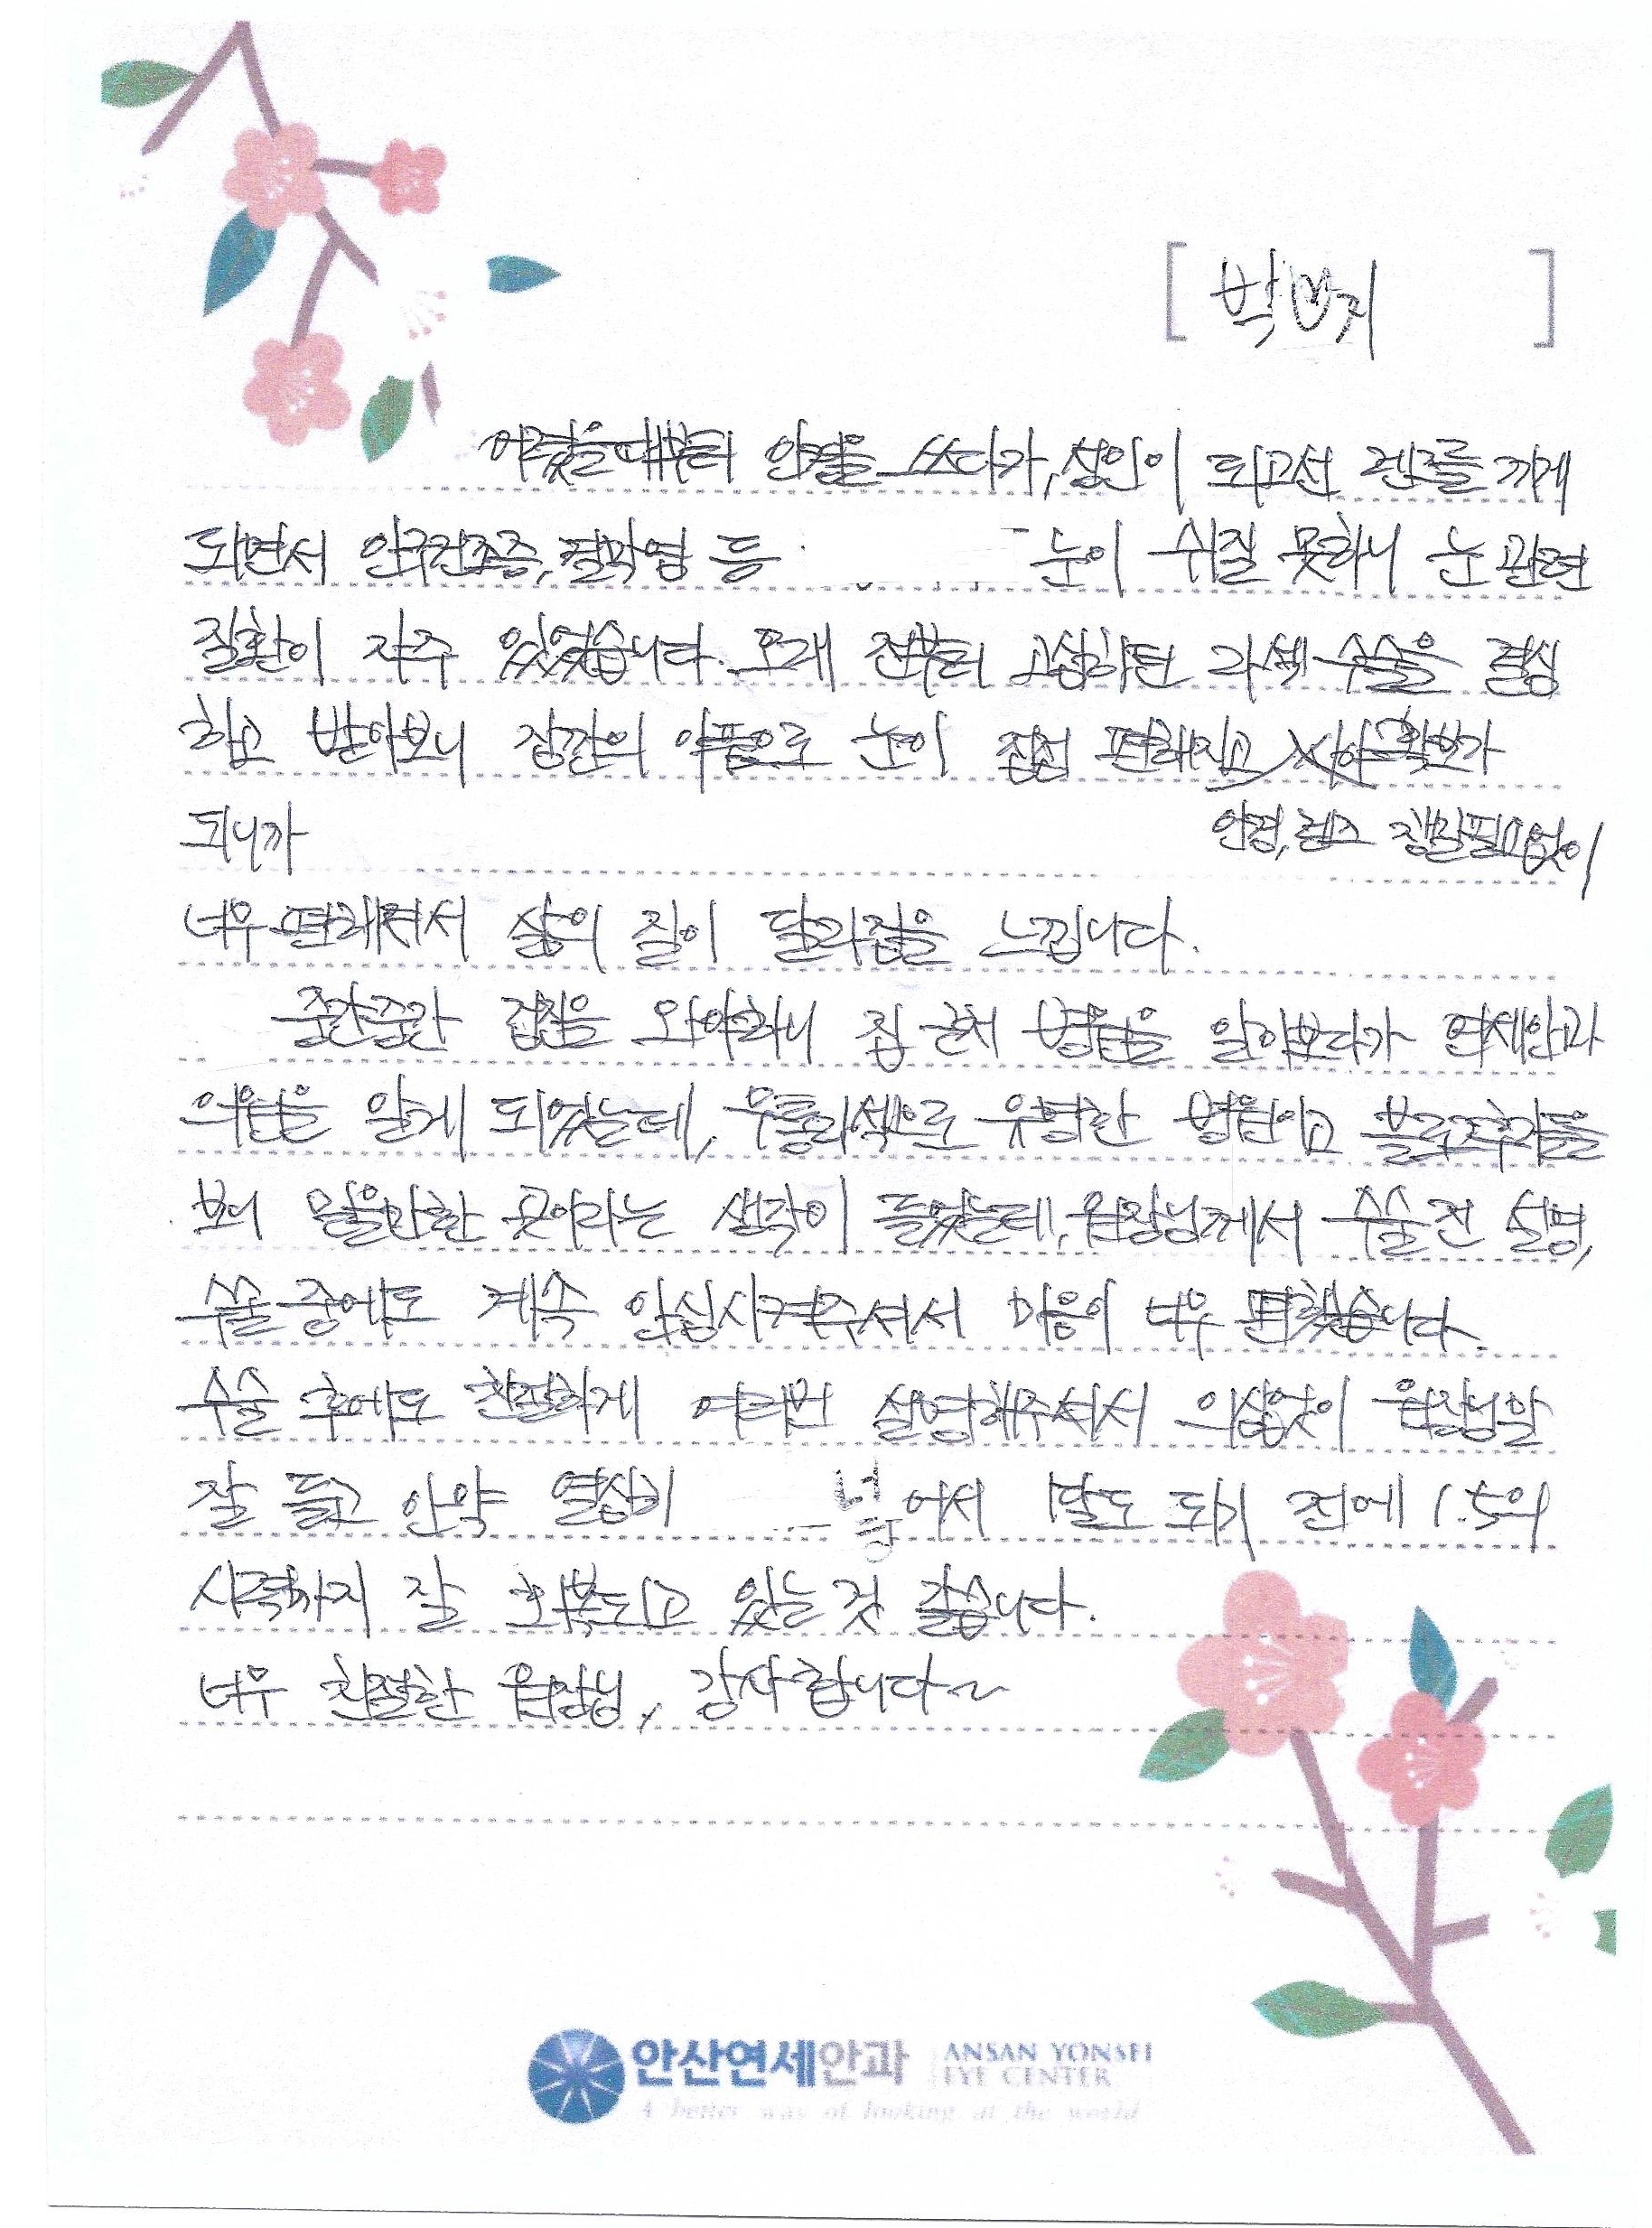 [ 박♡지 ]
어렸을때부터 안경을 쓰다가, 성인이 되고선 렌즈를 끼게
되면서 안구건조증, 결막염 등 눈이 쉬질 못하니 눈 관련
질환이 자주 있었습니다. 오래 전부터 고심하던 라섹 수술을 결심
하고 받아보니 잠깐의 아픔으로 눈이 점점 편해지고 시야확보가
되니까 안경, 렌즈 챙길필요없이
너무 편해져서 삶의 질이 달라짐을 느낍니다.
중간중간 검진을 와야하니 집 근처 병원을 알아보다가 연세안과
의원을 알게 되었는데, 우통라섹으로 유명한 병원이고 블로그후기들을
보니 믿을만한 곳이라는 생각이 들었는데, 원장님께서 수술 전 설명,
수술 중에도 계속 안심시켜주셔서 마음이 너무 편했습니다.
수술 후에도 친절하게 여러번 설명해주셔서 의심없이 원장님말
잘 듣고 안약 열심히 넣어서 1달도 되기 전에 1.5의
시력까지 잘 회복되고 있는 것 같습니다.
너무 친절한 원장님, 감사합니다~
안산연세안과 ANSAN YONSEI
EYE CENTER
A better way of looking at the world